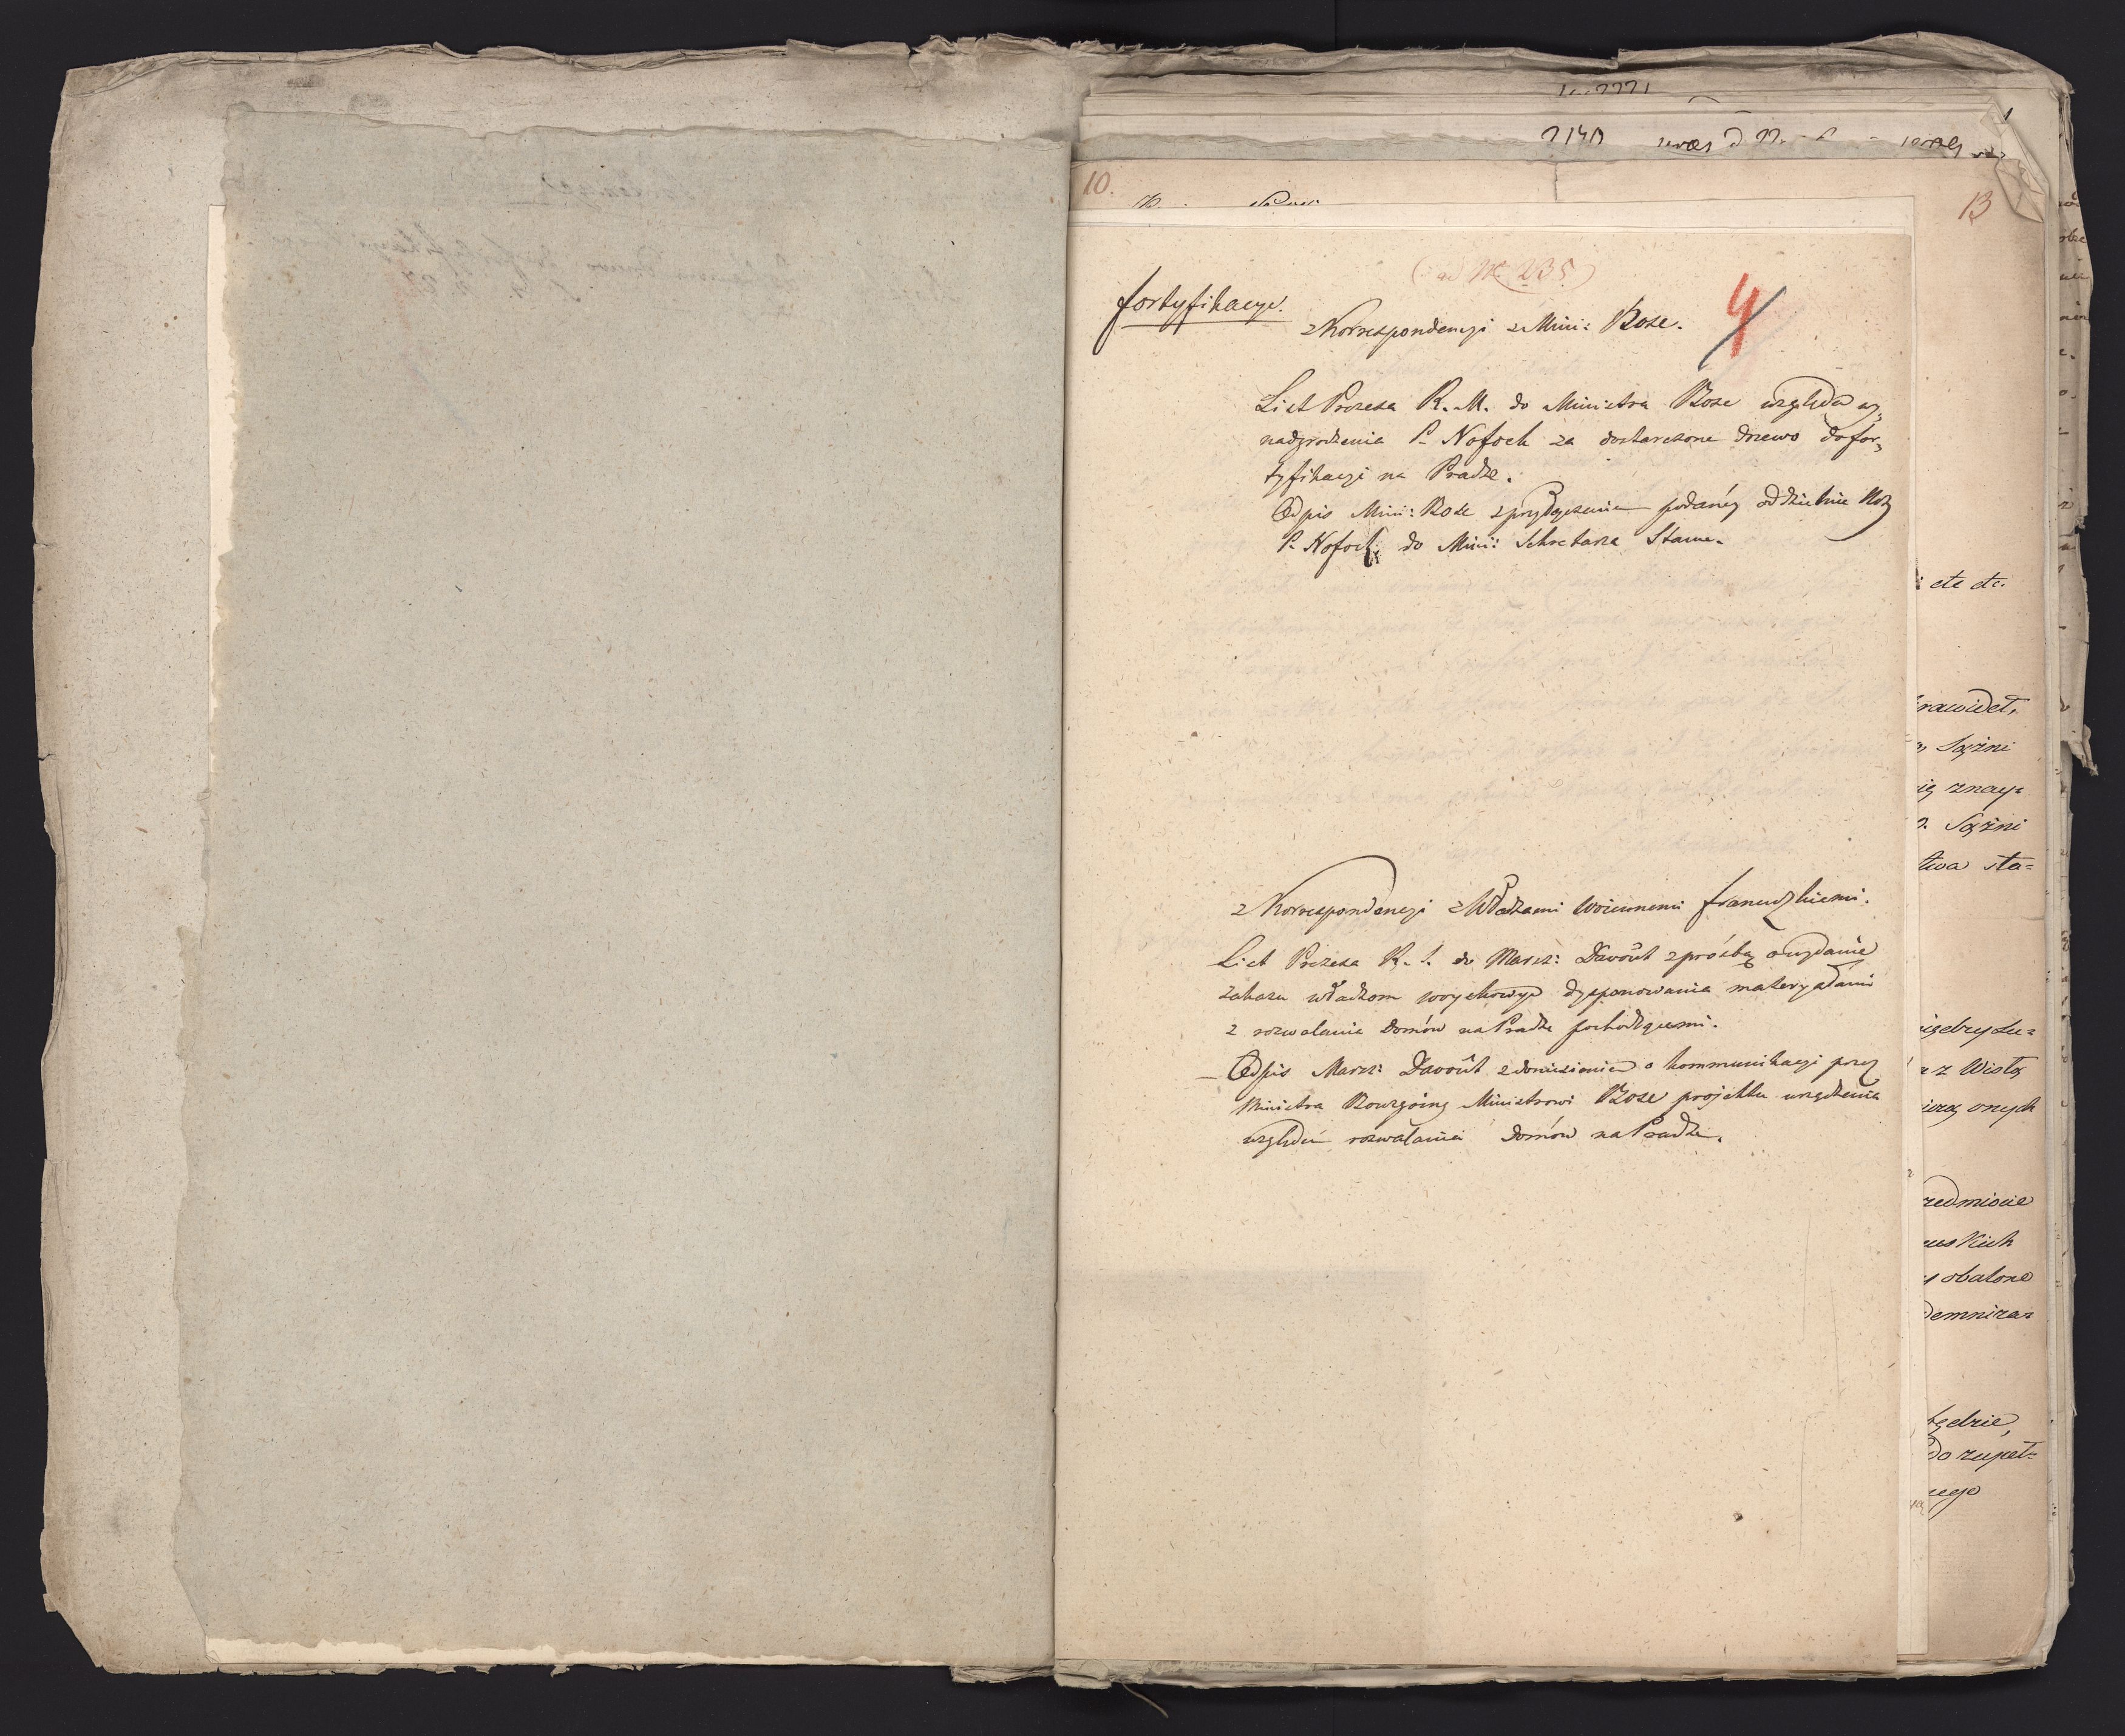 10.
13
(ad N. 235)
fortyfikacye.
4
z Korrespondencyi z Mini: Bose.
List Prezesa R. M. do Ministra Bose względem wy=
nadgrodzenia P. Nofock za dostarczone drzewo do for=
tyfikacyi na Pradze.
Odpis Mini: Bose z przyłączeniem podanéy oddzielnie Noty
P. Nofock do Mini: Sekretarza Stanu.
z Korrespondencyi z Władzami Woiennemi francuzkiemi.
List Prezesa R. S. do Marsz: Davoût z prośbą o wydanie
zakazu władzom woyskowym dysponowania materyałami
z rozwalania domów na Pradze pochodzącemi.
Odpis Marsz: Davoût z doniesieniem o kommunikacyi przez
Ministra Bourgoing Ministrowi Bose projektu urządzenia
względem rozwalania domów na Pradze.
etc etc.
rawideł,
Sążni
znay=
Sążni
sta=
z Wisłą
onych
obalone
do zupeł=